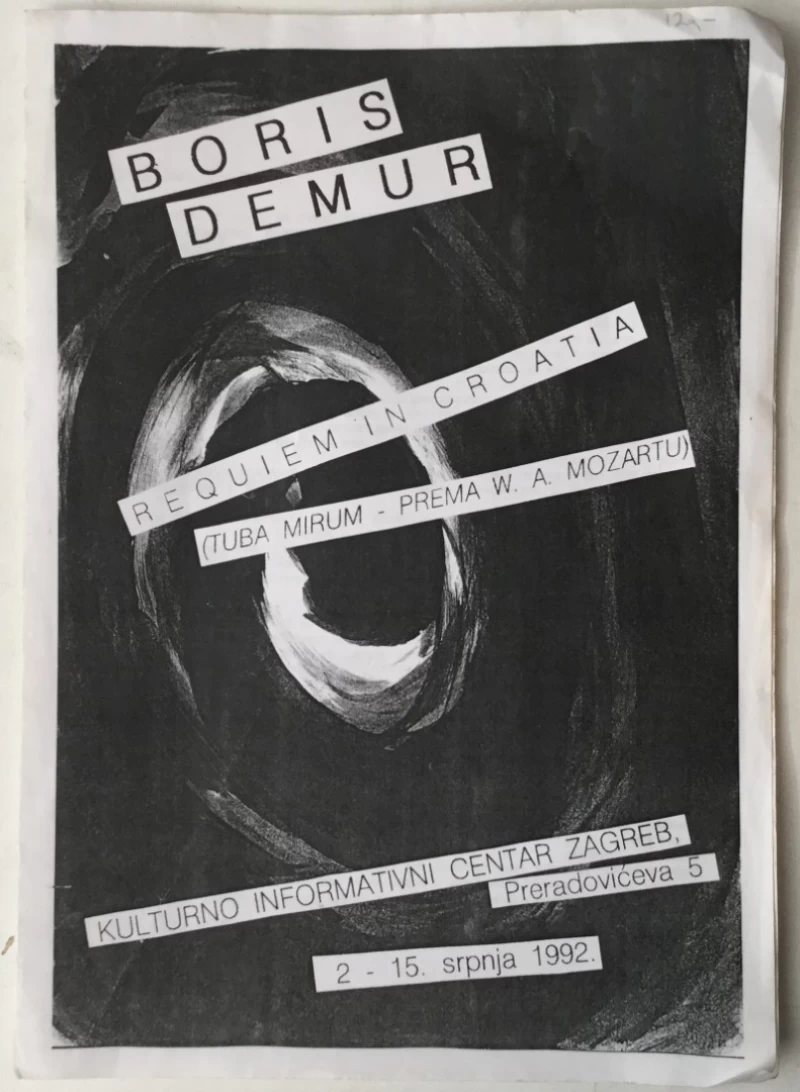 12,-
BORIS
DEMUR
REQUIEM IN CROATIA
(TUBA MIRUM - PREMA W. A. MOZARTU)
KULTURNO INFORMATIVNI CENTAR ZAGREB,
Preradovićeva 5
2 - 15. srpnja 1992.